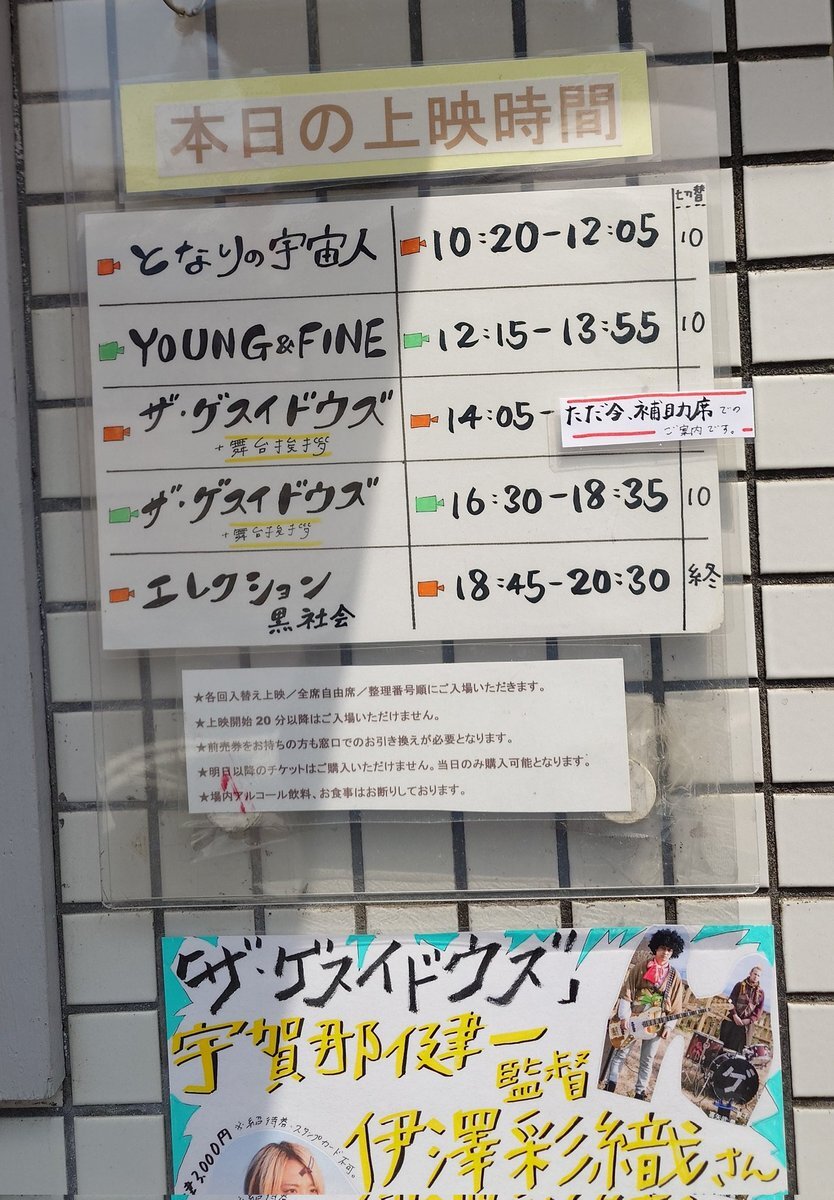 本日の上映時間
切替
となりの宇宙人 10:20-12:05 10
YOUNG&FINE 12:15-13:55 10
ザ・ゲスイドウズ 14:05- ただ今、補助席でのご案内です。
+舞台挨拶
ザ・ゲスイドウズ 16:30-18:35 10
+舞台挨拶
エレクション 18:45-20:30 終
黒社会
★各回入替え上映/全席自由席/整理番号順にご入場いただきます。
★上映開始20分以降はご入場いただけません。
★前売券をお持ちの方も窓口でのお引き換えが必要となります。
★明日以降のチケットはご購入いただけません。当日のみ購入可能となります。
★場内アルコール飲料、お食事はお断りしております。
「ザ・ゲスイドウズ」
宇賀那健一
監督
ゲ
伊澤彩織さん
¥3,000円
※招待券・スタンプカード不可。